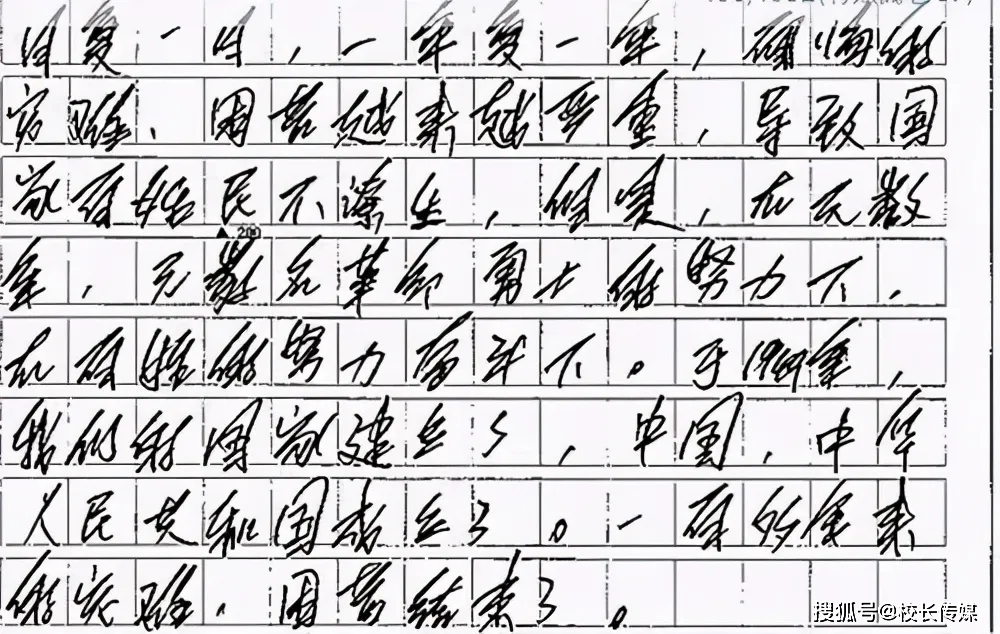 日复一日，一年复一年，的
灾难、困苦越来越严重，导致国
家百姓民不潦生，但是，在无数
200
年，无数名革命勇士的努力下，
在百姓的努力奋斗下。于1949年，
我们的国家建立了，中国，中华
人民共和国成立了。一百多年来
的灾难、困苦结束了。
搜狐号@校长传媒